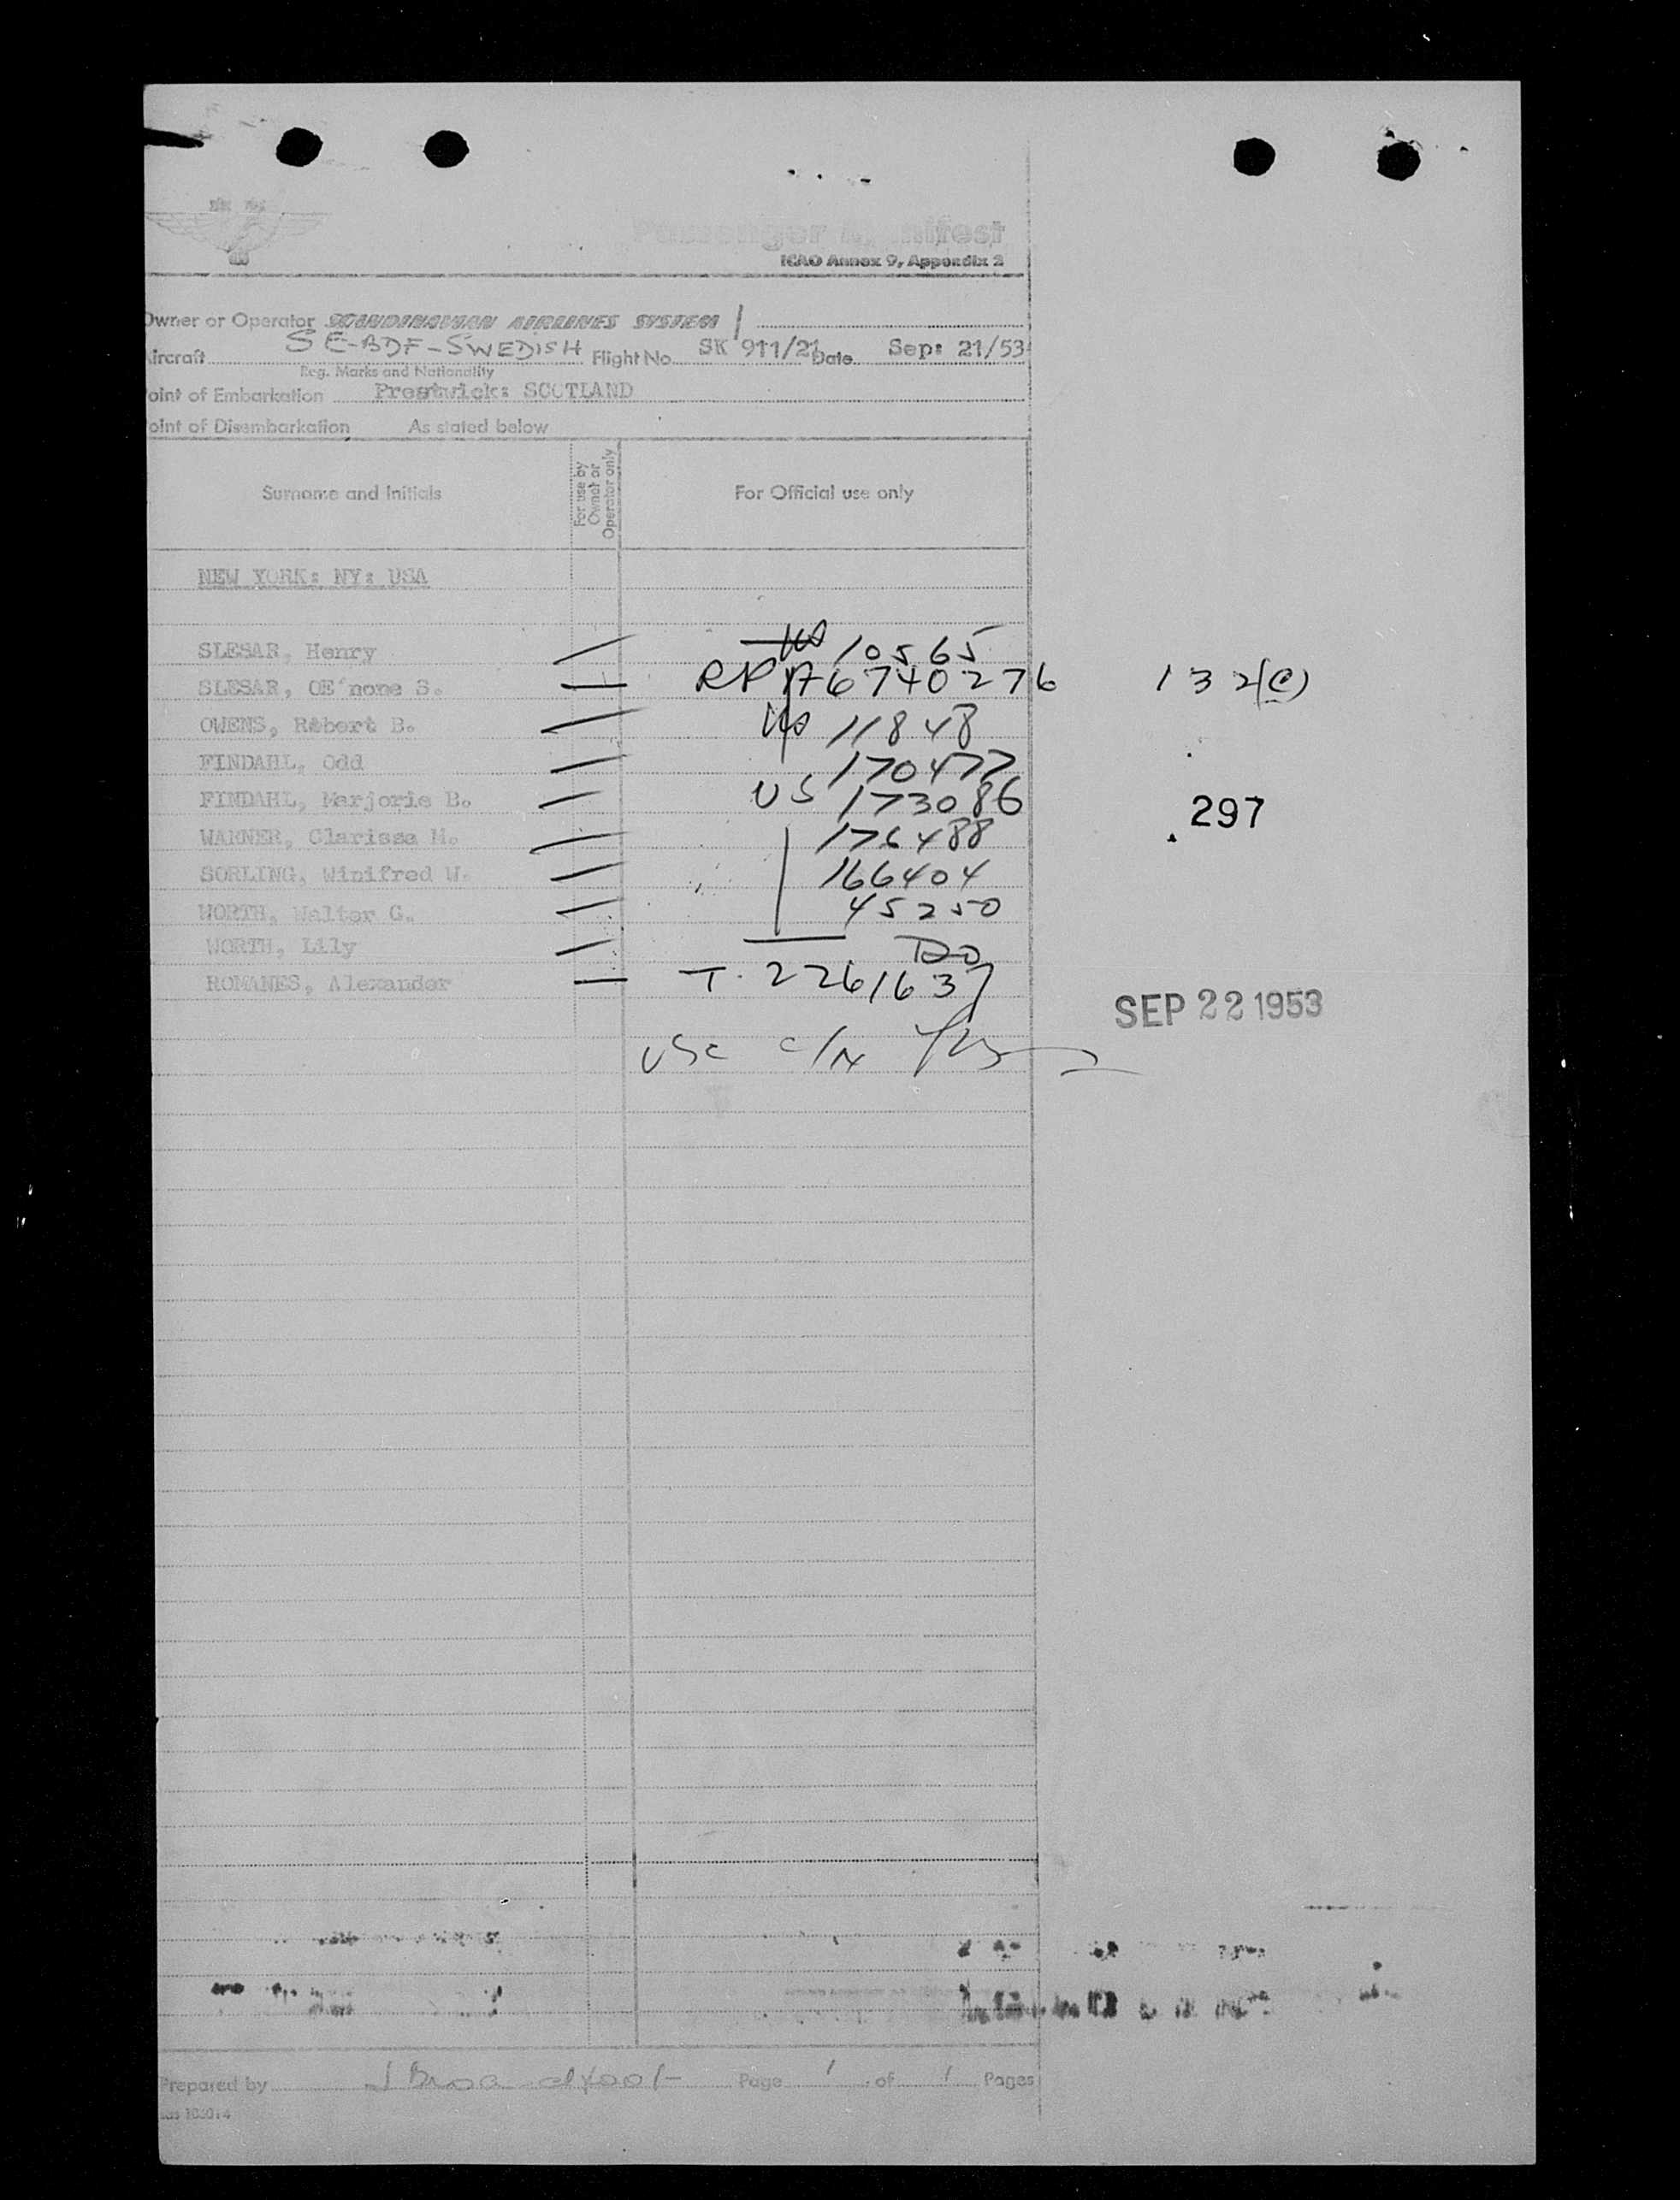 Passenger Manifest
ICAO Annex 9, Appendix 2
Owner or Operator SCANDINAVIAN AIRLINES SYSTEM
Aircraft SE-BDF-SWEDISH Flight No. SK 911/21 Date Sep: 21/53
Reg. Marks and Nationality
oint of Embarkation Prestwick: SCOTLAND
oint of Disembarkation As stated below
Surname and Initials For use by Owner or Operator only For Official use only
NEW YORK: NY: USA
SLESAR, Henry 10565
SLESAR, OE'none S. RP A6740276 132(C)
OWENS, Robert B. 11848
FINDAHL, Odd 170477
FINDAHL, Marjorie B. US 173086
297
WARNER, Clarissa M. 176488
SORLING, Winifred W. 166404
WORTH, Walter G. 45250
WORTH, Lily DO
ROMANES, Alexander T. 2261637
SEP 22 1953
USC C/N
Prepared by Page 1 of 1 Pages